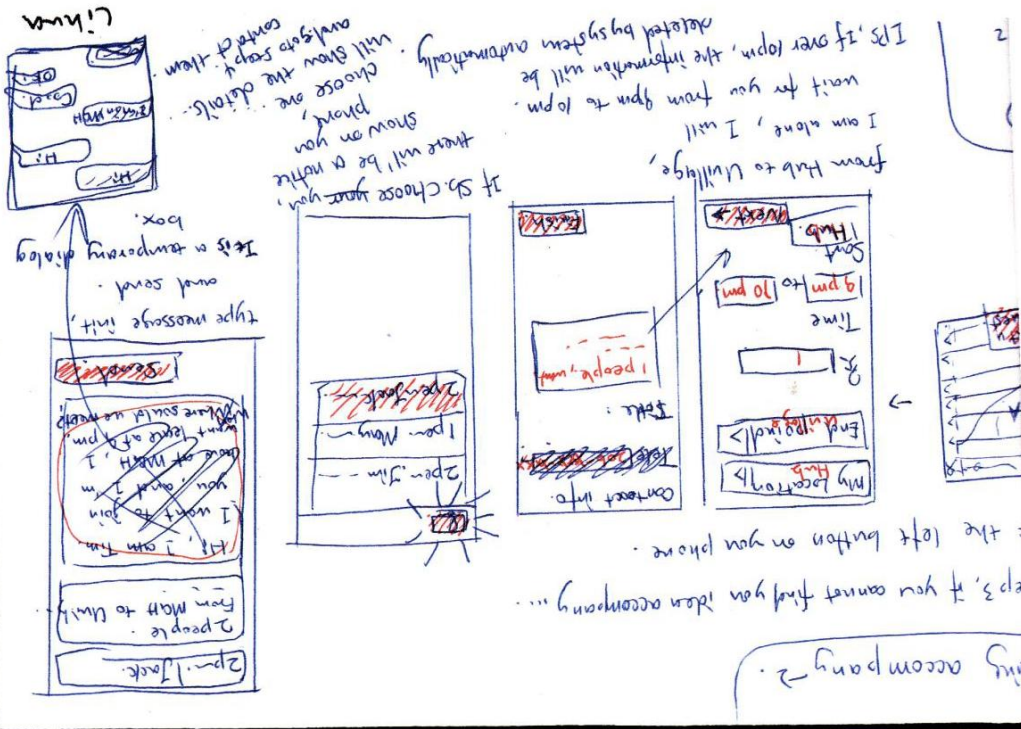 ing accompany -2.
ep3, if you cannot find you iden accompany ...
the left button on you phone.
My Location >
Hub
End point >
Time
9 pm to 10 pm
Sort
Hub.
Next →
Contact info.
Title:
1 people, want
Finish.
from Hub to Uvillage,
I am alone, I will
wait for you from 9pm to 10pm.
IPS, If over 10pm, the information will be
deleted by system automatically.
2 per Jim
1 per Mary
2 per Jack
If Sb. choose your you,
there will be a notice
show on you
phone,
choose one ...
will show the details...
and go to step 4
contact them.
2 per. Jack.
2 people.
From MGH to Uvill...
Hi, I am Tim
I want to join
you and, I'm
now at MGH, I
want leave at 9 pm.
Where would we meet?
Send
type message in it,
and send.
It is a temporary dialog
box.
Hi!
Hi
MGH
Cool.
Ok!
2